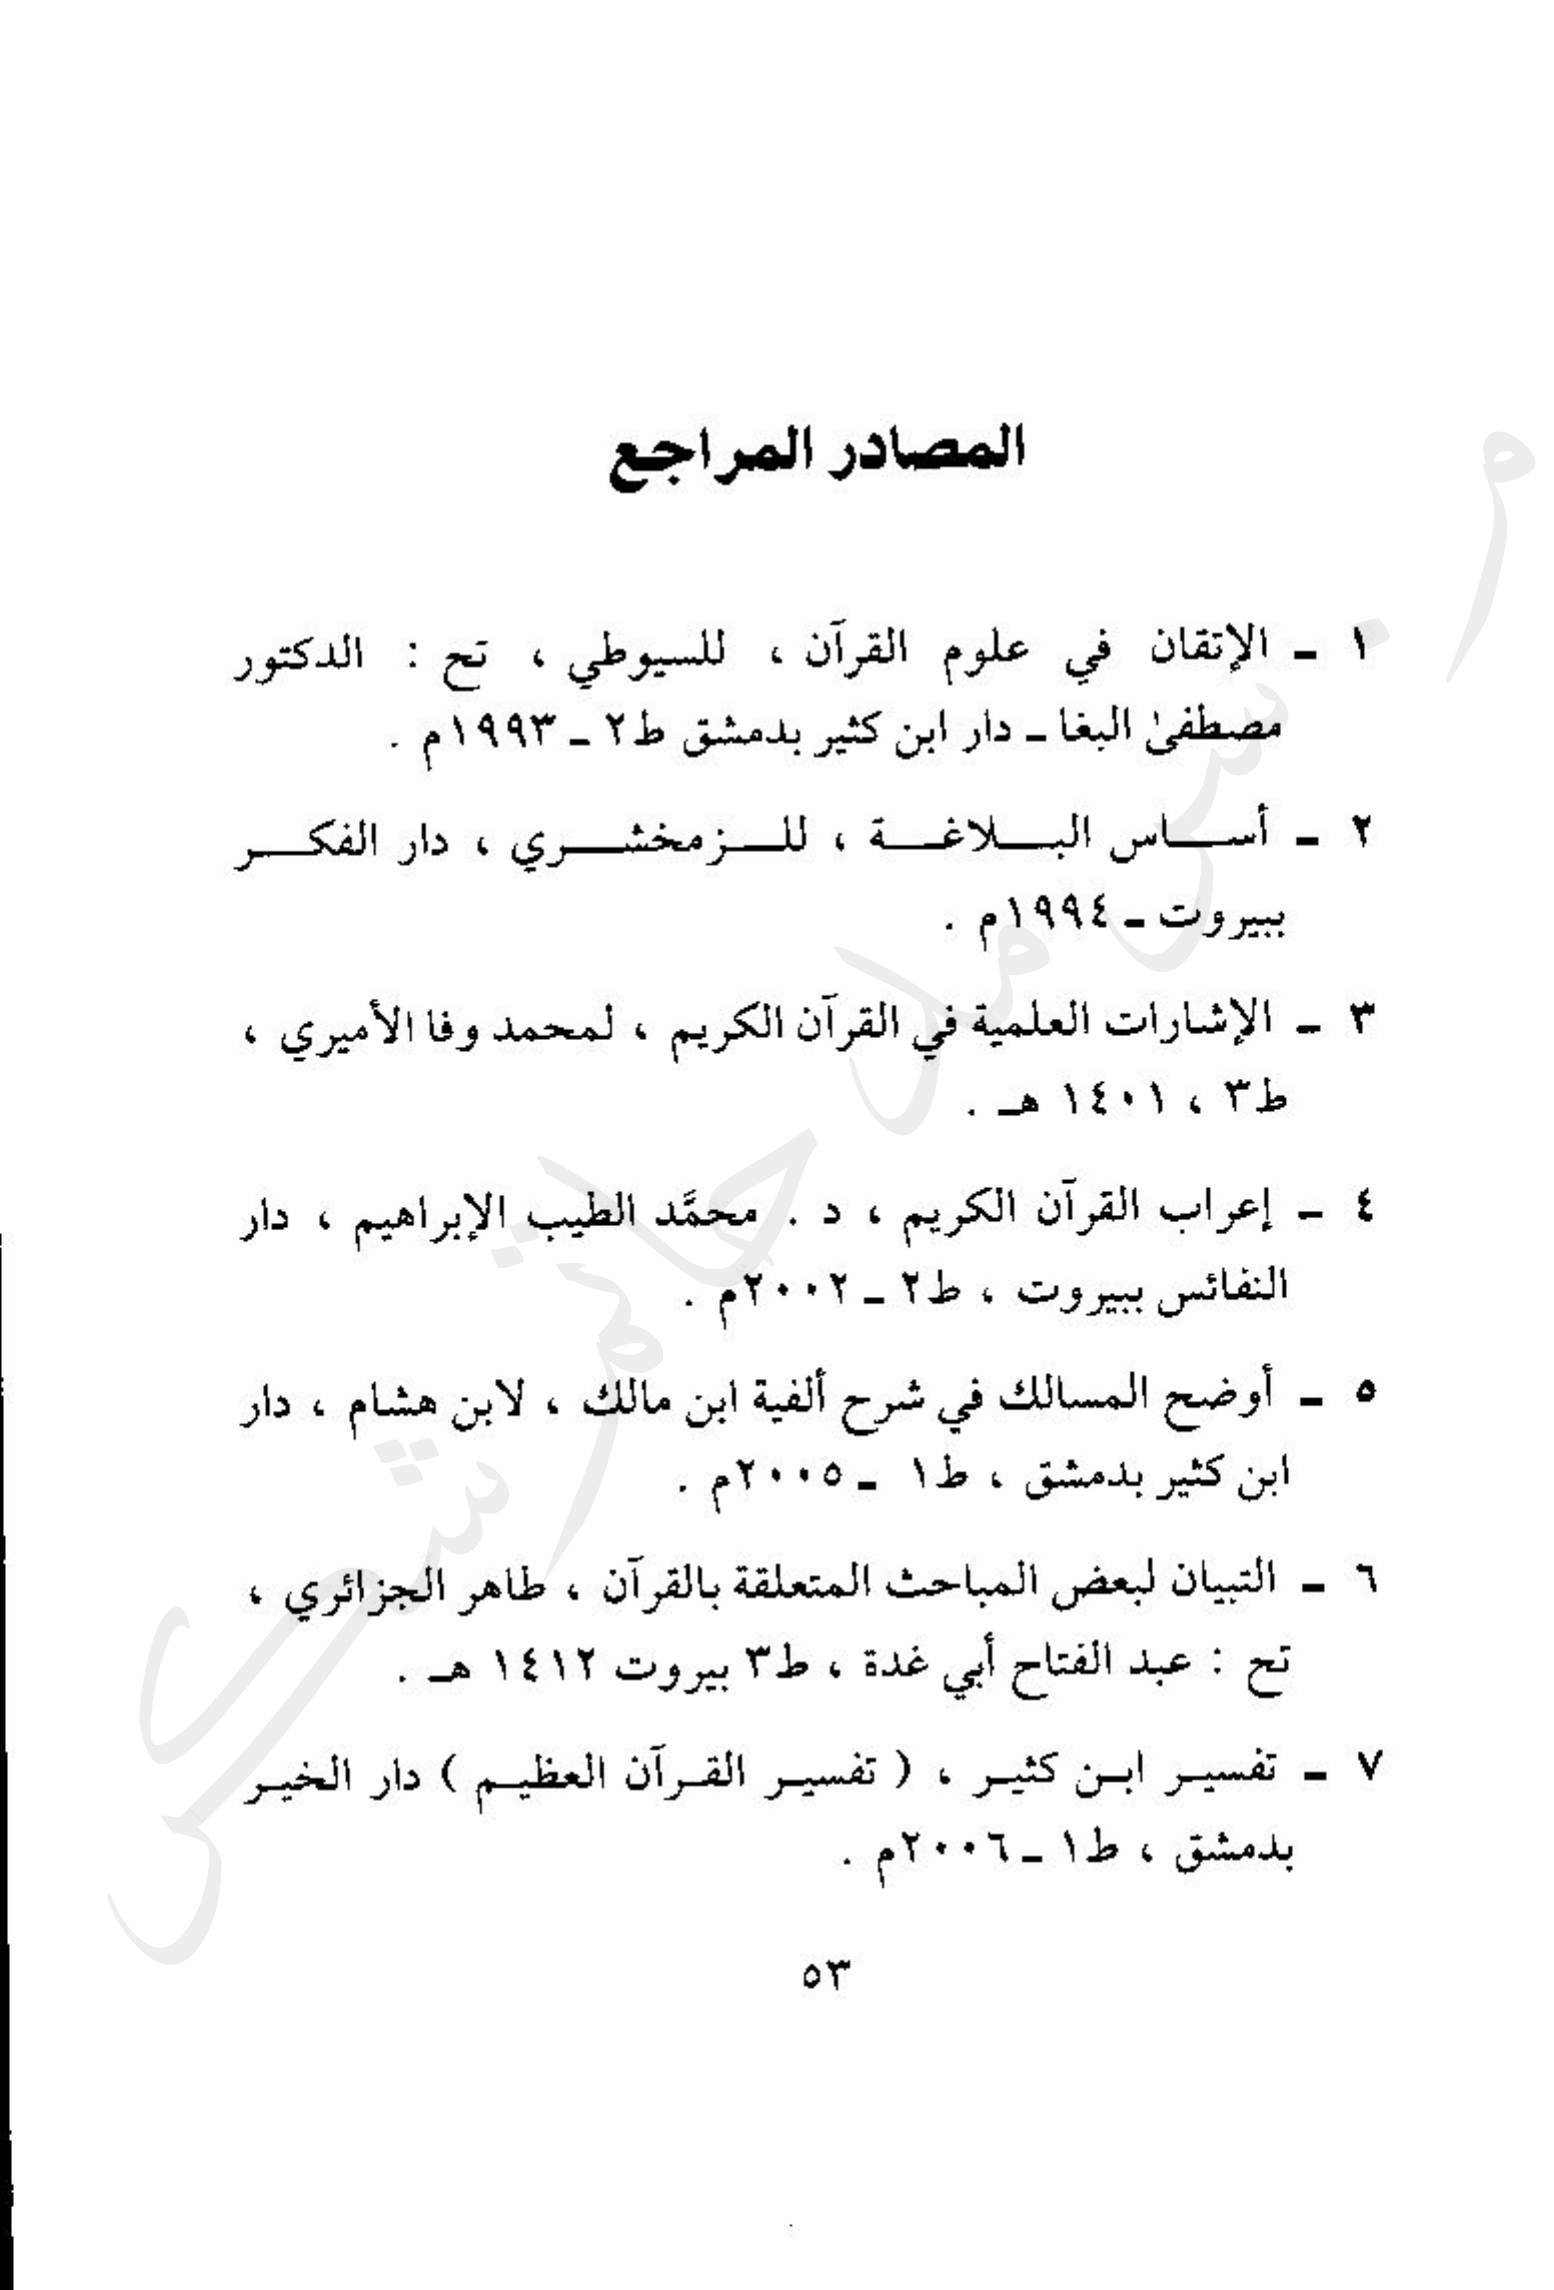 المصادر المراجع
١ ـ الإتقان في علوم القرآن ، للسيوطي ، تح : الدكتور
مصطفىٰ البغا ـ دار ابن كثير بدمشق ط٢ ـ ١٩٩٣م .
٢ ـ أساس البلاغة ، للزمخشري ، دار الفكر
ببيروت ـ ١٩٩٤م .
٣ ـ الإشارات العلمية في القرآن الكريم ، لمحمد وفا الأميري ،
ط٣ ، ١٤٠١ هـ .
٤ ـ إعراب القرآن الكريم ، د . محمَّد الطيب الإبراهيم ، دار
النفائس ببيروت ، ط٢ ـ ٢٠٠٢م .
٥ ـ أوضح المسالك في شرح ألفية ابن مالك ، لابن هشام ، دار
ابن كثير بدمشق ، ط١ ـ ٢٠٠٥م .
٦ ـ التبيان لبعض المباحث المتعلقة بالقرآن ، طاهر الجزائري ،
تح : عبد الفتاح أبي غدة ، ط٣ بيروت ١٤١٢ هـ .
٧ ـ تفسير ابن كثير ، ( تفسير القرآن العظيم ) دار الخير
بدمشق ، ط١ ـ ٢٠٠٦م .
٥٣